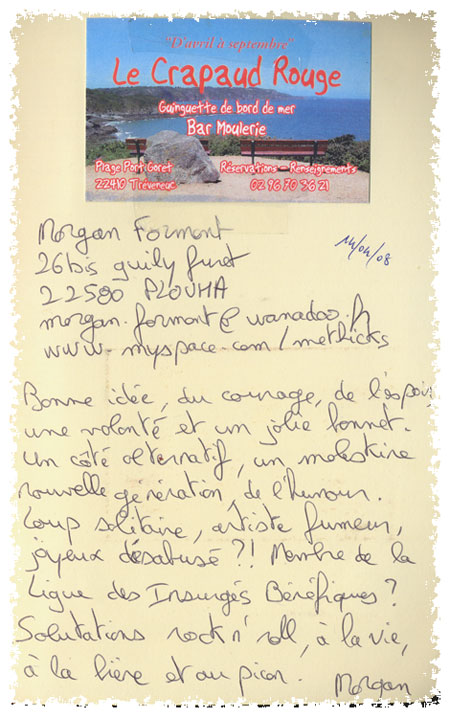 "D'avril à septembre"
Le Crapaud Rouge
Guinguette de bord de mer
Bar Moulerie
Plage Port Goret
22410 Tréveneuc
Réservations - Renseignements
02 96 70 36 21
14/04/08
Morgan Formont
26bis guily furet
22580 PLOUHA
morgan.formont@wanadoo.fr
www.myspace.com/methicks
Bonne idée, du courage, de l'espoir
une volonté et un jolie bonnet.
Un côté alternatif, un moleskine
nouvelle génération, de l'humour.
Loup solitaire, artiste fumeur,
joyeux désabusé ?! Membre de la
Ligue des Insurgés Bénéfiques ?
Salutations rock n' roll, à la vie,
à la bière et au picon.
Morgan